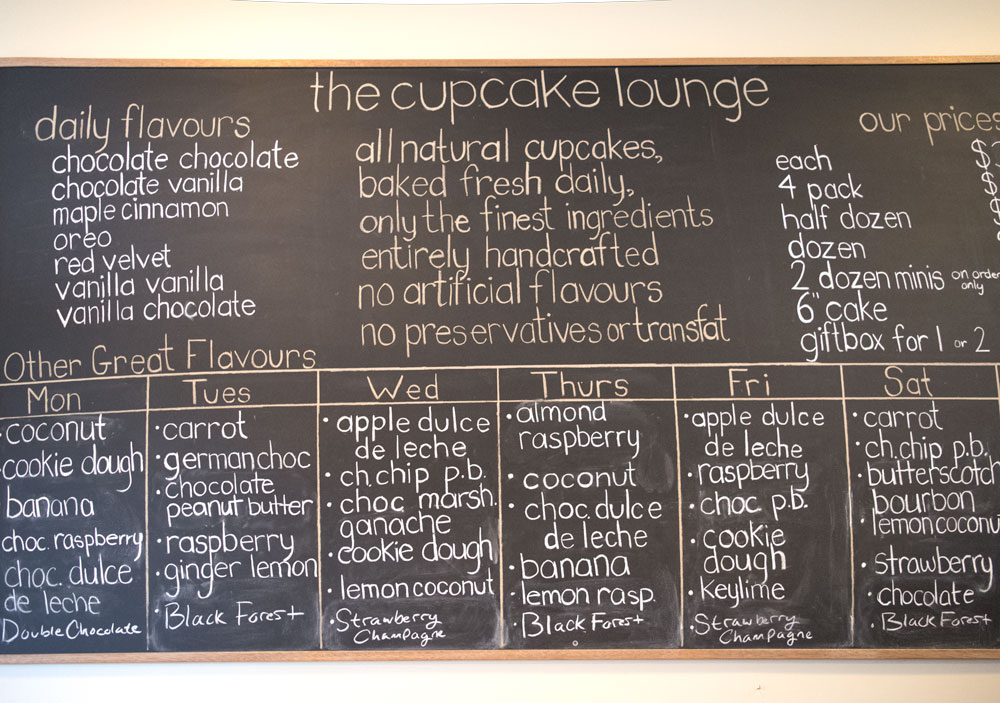 the cupcake lounge
daily flavours
chocolate chocolate
chocolate vanilla
maple cinnamon
oreo
red velvet
vanilla vanilla
vanilla chocolate
all natural cupcakes,
baked fresh daily,
only the finest ingredients
entirely handcrafted
no artificial flavours
no preservatives or transfat
our prices
each $
4 pack $
half dozen $
dozen
2 dozen minis on order
only
6" cake
giftbox for 1 or 2
Other Great Flavours
Mon
· coconut
· cookie dough
banana
choc. raspberry
choc. dulce
de leche
Double Chocolate
Tues
· carrot
· german choc
· chocolate
peanut butter
· raspberry
· ginger lemon
· Black Forest
Wed
· apple dulce
de leche
· ch.chip p.b.
· choc marsh.
ganache
· cookie dough
· lemon coconut
· Strawberry
Champagne
Thurs
· almond
raspberry
· coconut
· choc dulce
de leche
· banana
· lemon rasp.
· Black Forest
Fri
· apple dulce
de leche
· raspberry
· choc p.b.
· cookie
dough
· Keylime
· Strawberry
Champagne
Sat
· carrot
· ch.chip p.b.
· butterscotch
bourbon
· lemon coconu
· Strawberry
· chocolate
· Black Forest